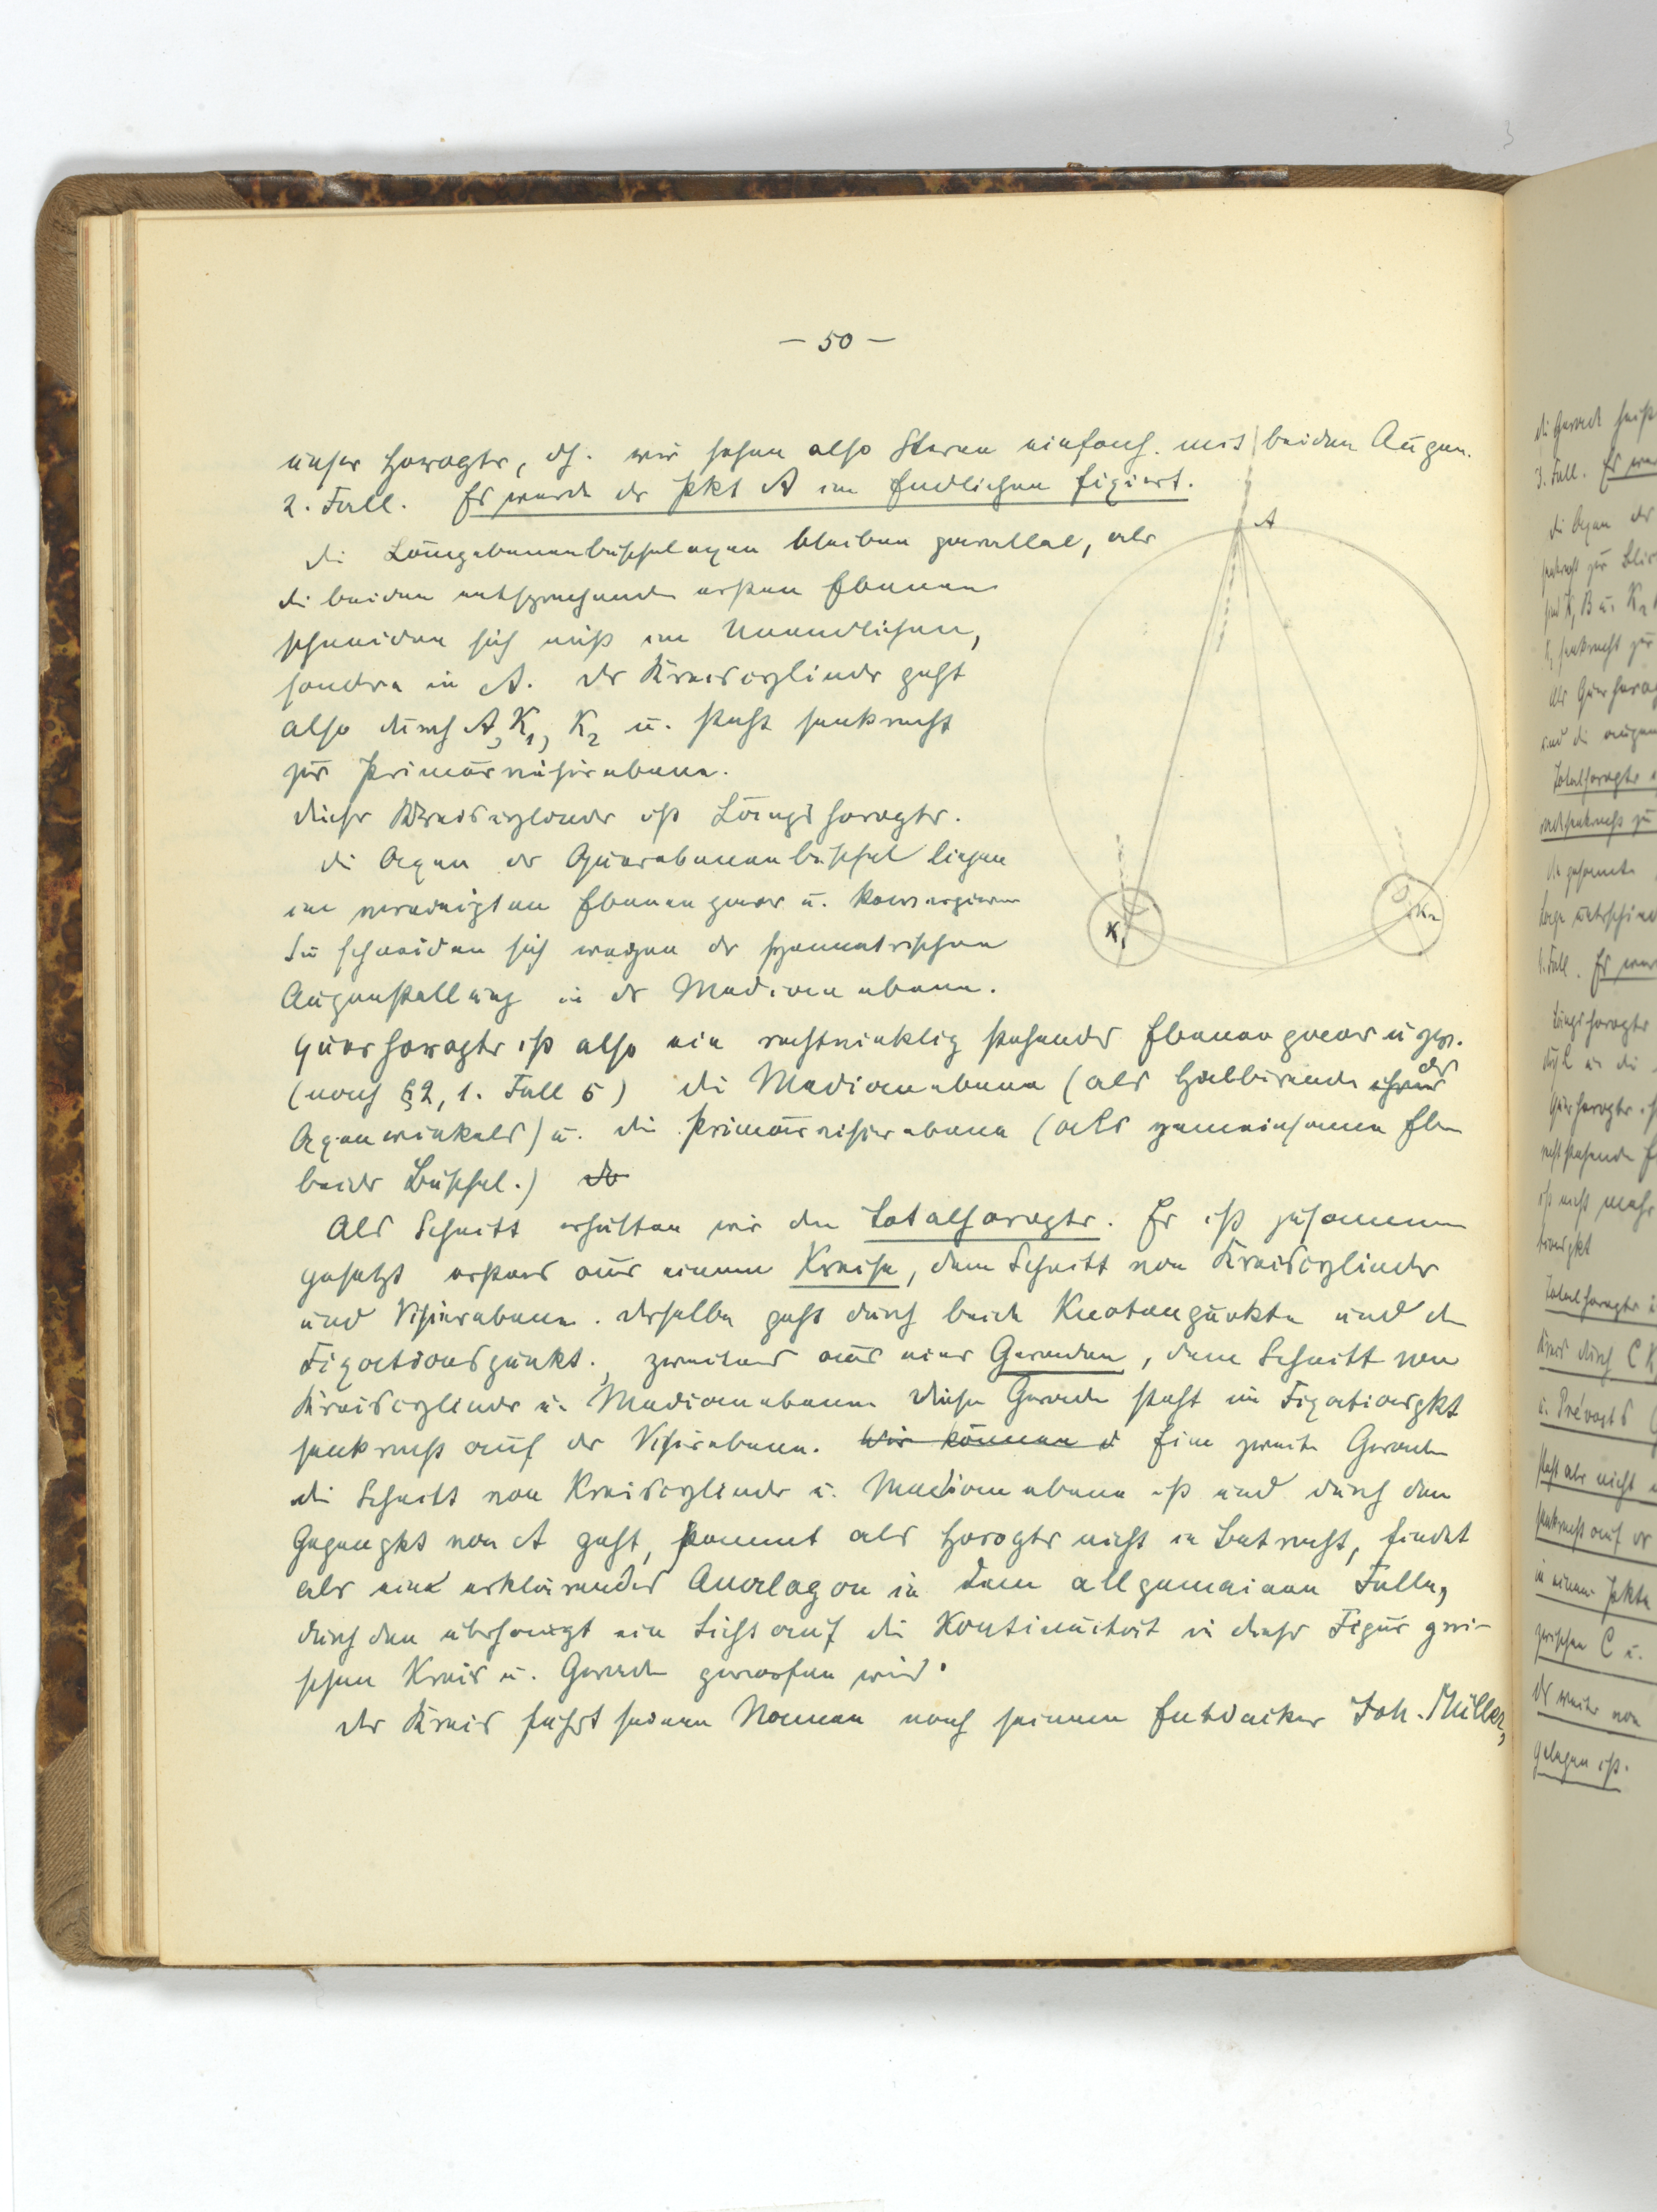 — 50 —
unser Horopter, dh. wir sehen also Sterne einfach mit beiden Augen.
2. Fall. Es werde der Pkt A im Endlichen fixiert.
die Längsebenenbüschelaxen bleiben parallel, aber
die beiden entsprechenden ersten Ebenen
schneiden sich nicht im Unendlichen,
sondern in A. der Kreiscylinder geht
also durch A, K1, K2 u. steht senkrecht
zur Primärvisirebene.
dieser Kreiscylinder ist Längshoropter.
die Axen der Querebenenbüschel liegen
im vereinigten Ebenenpaar u. konvergieren
Sie schneiden sich wegen der symmetrischen
Augenstellung in der Medianebene.
Querhoropter ist also ein rechtwinklig stehendes Ebenenpaar u zw.
(nach §2, 1. Fall 5) die Medianebene (als Halbirende ihres der
Axenwinkels) u. die Primärvisierebene (als gemeinsame Eben
beider Büschel.) de
Als Schnitt erhalten wir den Totalhoropter. Er ist zusammen
gesetzt erstens aus einem Kreise, dem Schnitt von Kreiscylinder
und Visierebene. derselbe geht durch beide Knotenpunkte und den
Fixationspunkt., zweitens aus einer Geraden, dem Schnitt von
Kreiscylinder u. Medianebene diese Gerade steht im Fixationspkt
senkrecht auf der Visirebene. Wir können d Eine zweite Gerade
die Schnitt von Kreiscylinder u. Medianebene ist und durch den
Gegenpkt von A geht, kommt als Horopter nicht in Betracht, findet
aber eine erklärendes Analogon in dem allgemeinen Falle,
durch den überhaupt ein Licht auf die Kontinuität in dieser Figur zwi-
schen Kreis u. Gerade geworfen wird.
der Kreis führt seinen Namen nach seinem Entdecker Joh. Müller,
A
K1
K2
die Gerade heißt
3. Fall. Es wer
die Axen der
senkrecht zur
Als Querhorop
Totalhoropter
die gesamte
4. Fall. Es wer
Längshoropter
Querhoropter
ist nicht mehr
Totalhoropter
Kreis durch C K
u. Prévosts
steht aber nicht
senkrecht auf der
in einem Pkte
zwischen C u.
der weiter von
gelegen ist.